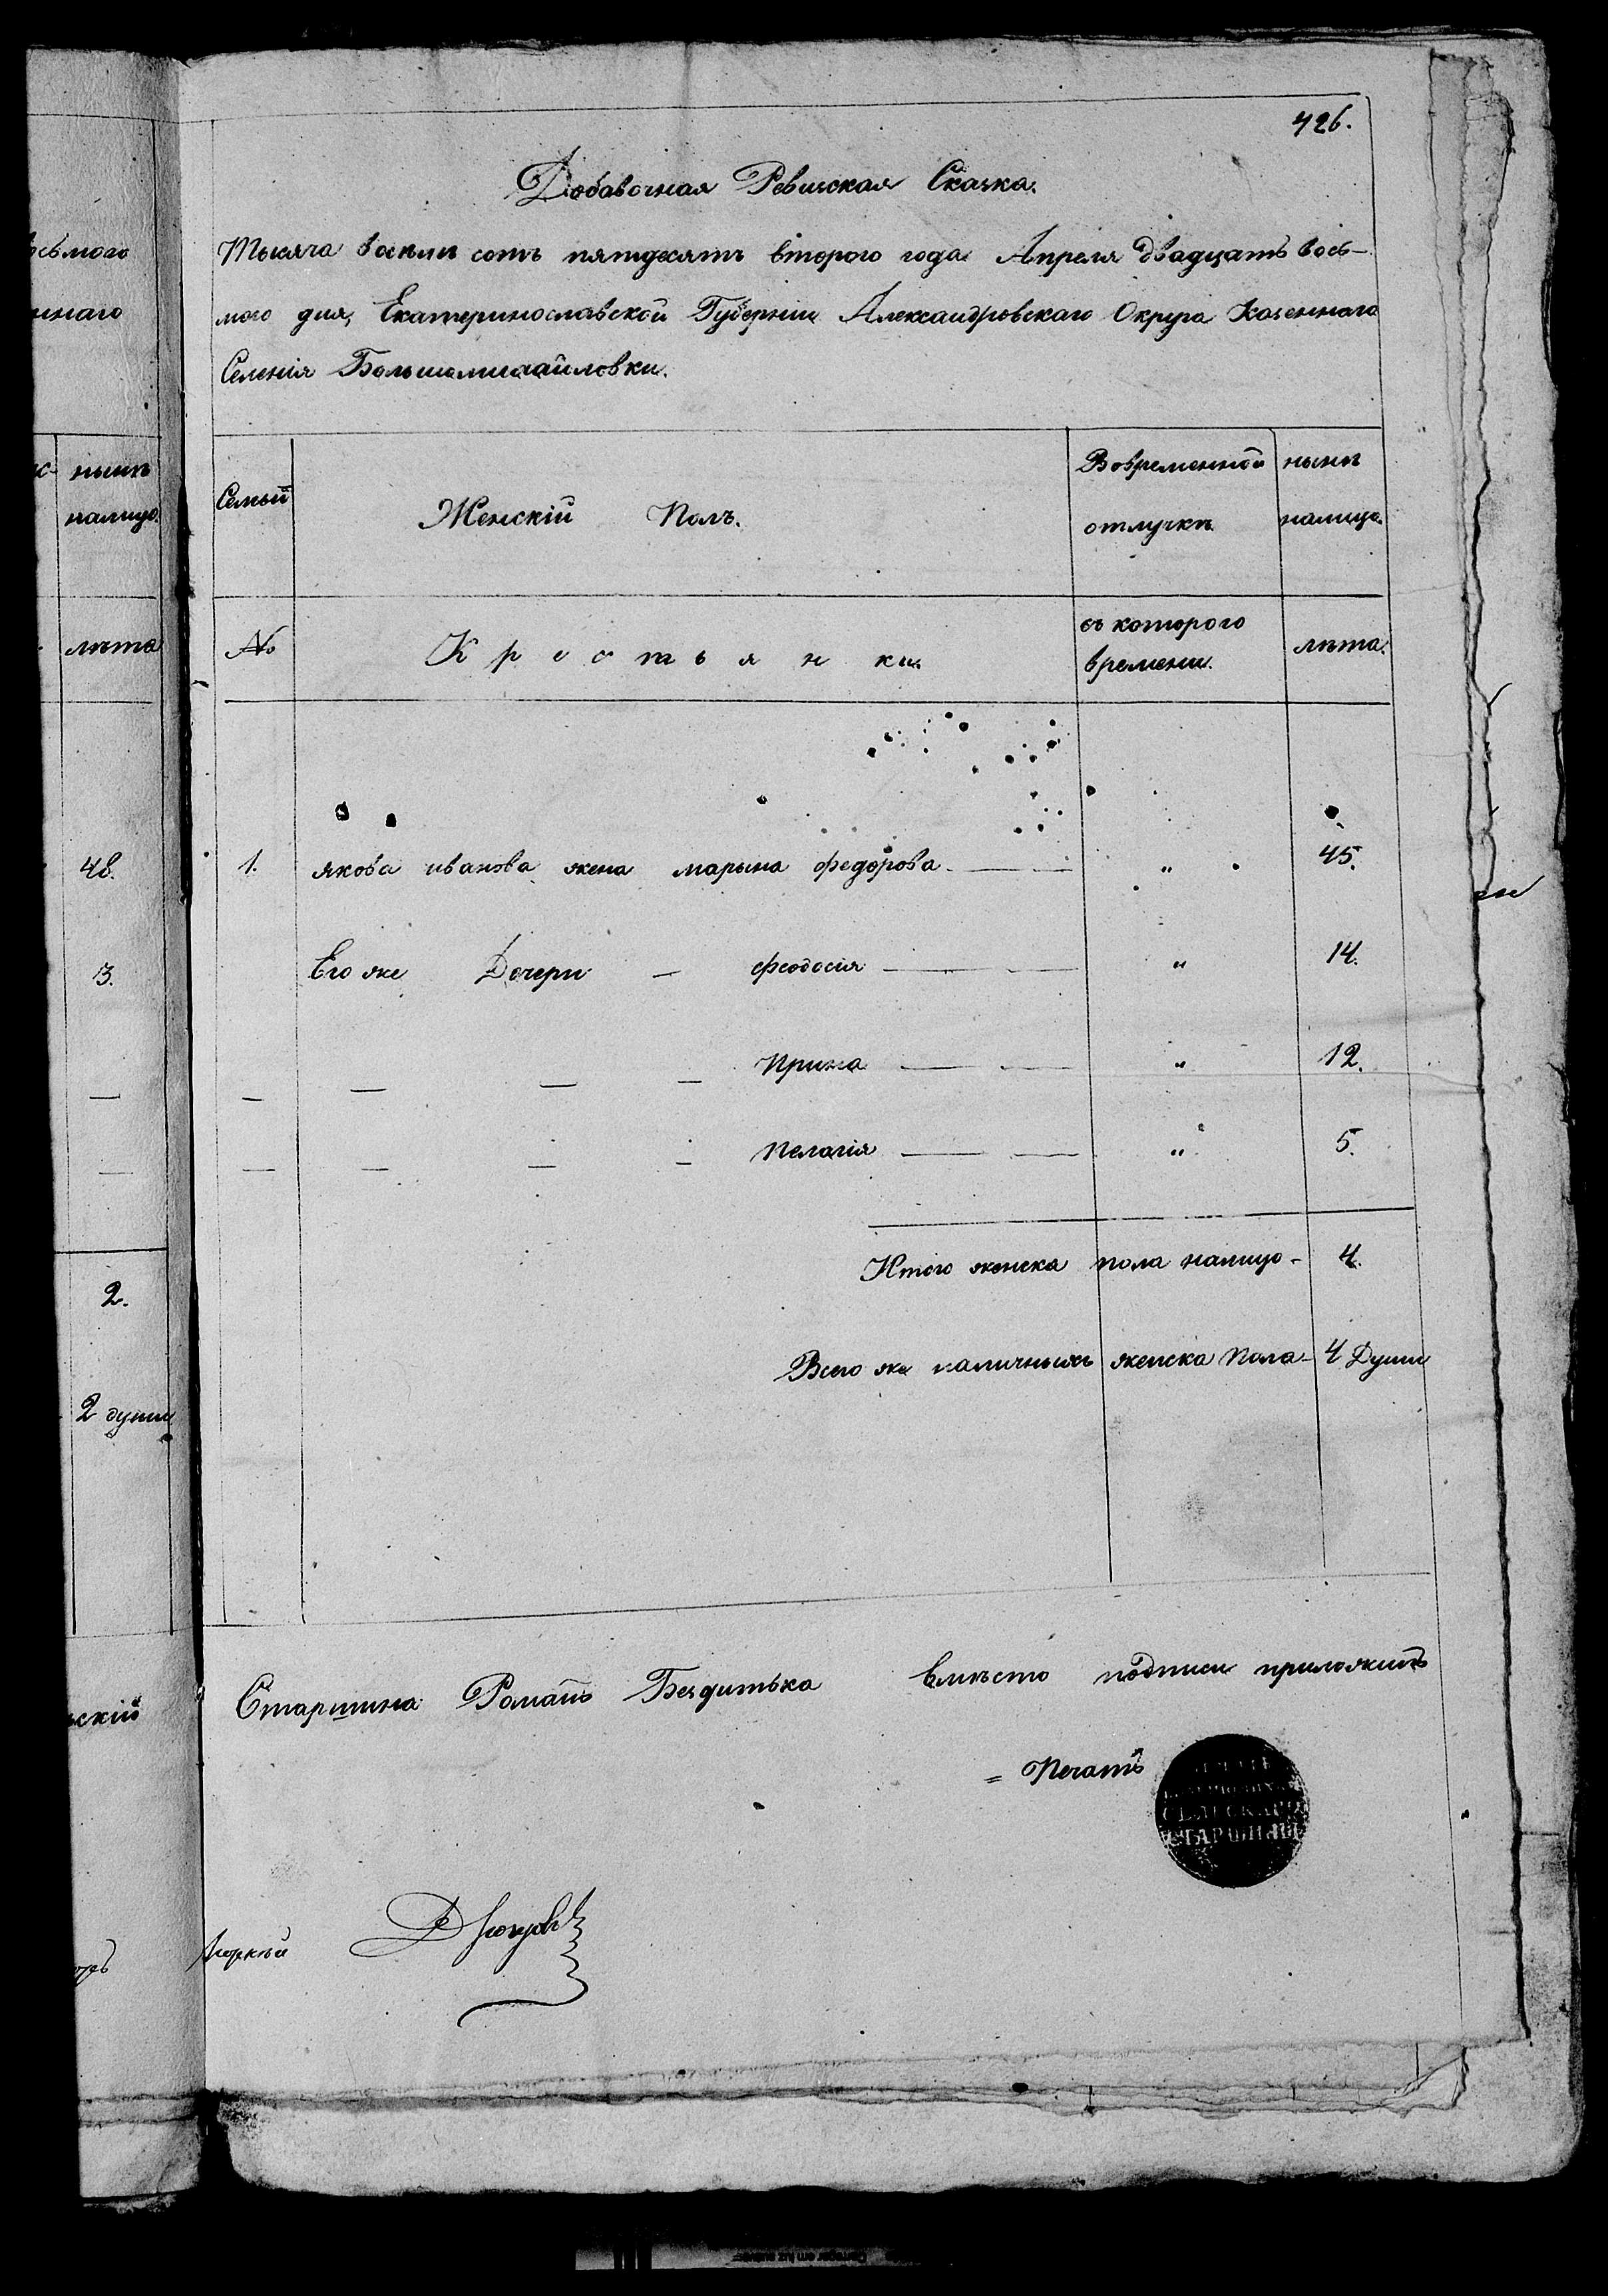 426.
Добавочная Ревизская Сказка.
Тысяча восемь сотъ пятдесятъ втораго года Апреля двадцать вось-
мого дня, Екатеринославской Губерніи Александровскаго Округа Казеннаго
Селенія Большемихайловки.
Семьи
Женскій Полъ.
Вовременной отлучкѣ
нынѣ налицо.
№
Крестьянки
съ которого времени.
лѣта.
1. якова иванова жена марьина федорова — — „ 45.
Его же Дочери — феодосія — — „ 14.
— — — — Ирина — — „ 12.
— — — — Пелагія — — „ 5.
Итого женска пола налицо - 4.
Всего же наличныхъ женска Пола - 4 Души
Старшина Романъ вмѣсто подписи приложилъ
= Печать
СЕЛЬСКАГО
СТАРШИНЫ
осьмого
ннаго
нынѣ
налицо.
лѣта
48.
3.
2.
2 души
скій